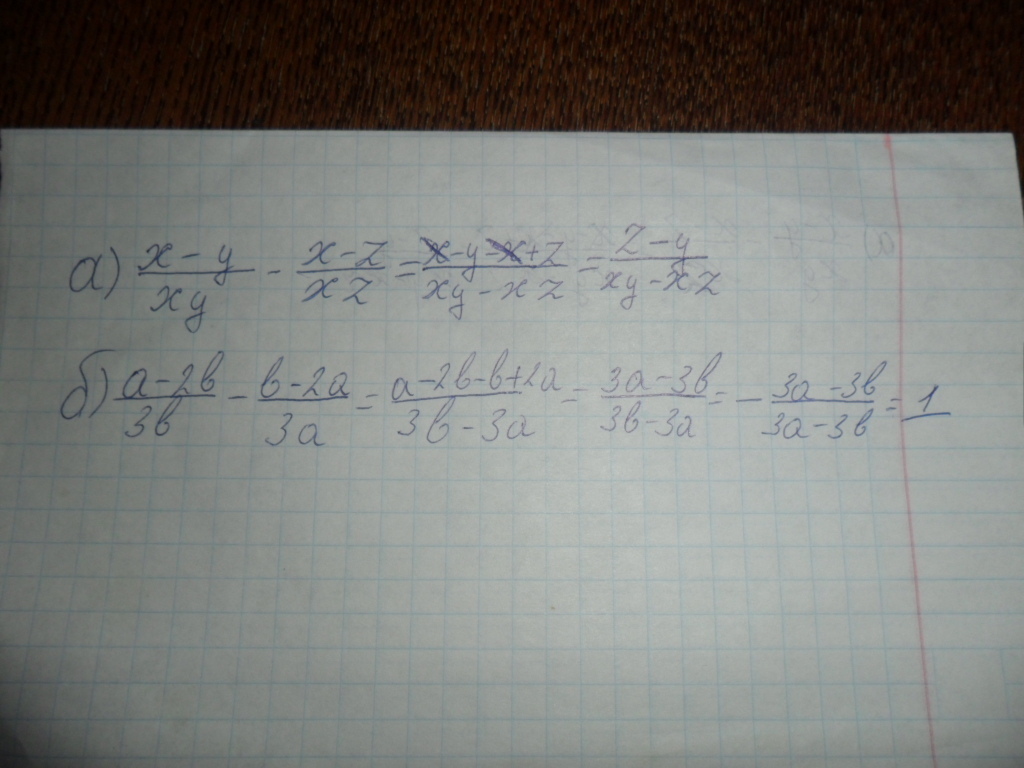 а) (x-y)/(xy) - (x-z)/(xz) = (x-y-x+z)/(xy-xz) = (z-y)/(xy-xz)
б) (a-2b)/(3b) - (b-2a)/(3a) = (a-2b-b+2a)/(3b-3a) = (3a-3b)/(3b-3a) = - (3a-3b)/(3a-3b) = 1